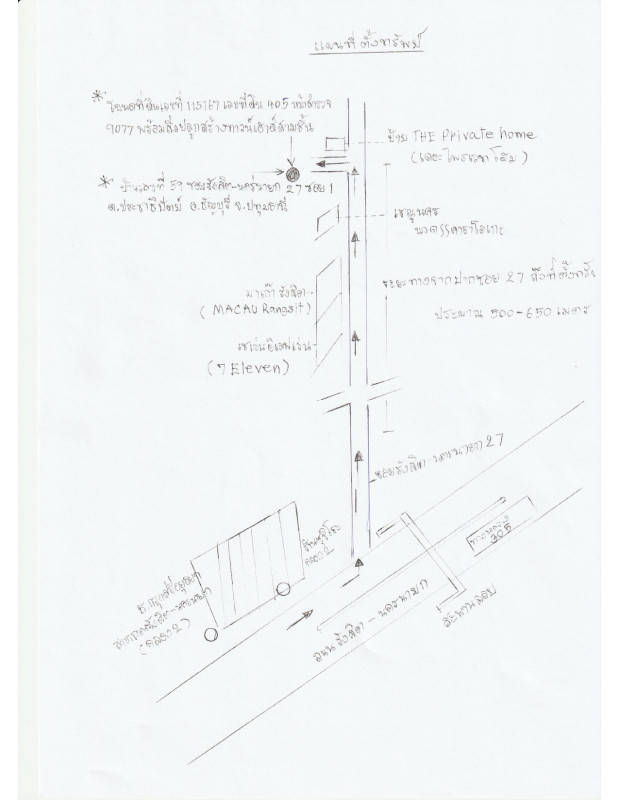 แผนที่ตั้งทรัพย์
* โฉนดที่ดินเลขที่ 115767 เลขที่ดิน 405 หน้าสำรวจ
9077 พร้อมสิ่งปลูกสร้างทาวน์เฮาส์สามชั้น
ป้าย THE Private home
(เดอะไพรเวทโฮม)
* บ้านเลขที่ 59 ซอยรังสิต-นครนายก 27 ซอย 1
ต.ประชาธิปัตย์ อ.ธัญบุรี จ.ปทุมธานี
คาราโอเกะ
ระยะทางจากปากซอย 27 ถึงที่ตั้งทรัพย์
ประมาณ 500-650 เมตร
มาเก๊า รังสิต
(MACAU Rangsit)
เซเว่นอีเลฟเว่น
(7 Eleven)
ซอยรังสิต-นครนายก 27
ทางหลวง
305
คลอง 2
สาขาถนนรังสิต-นครนายก
(คลอง 2)
ถนนรังสิต-นครนายก
สะพานลอย